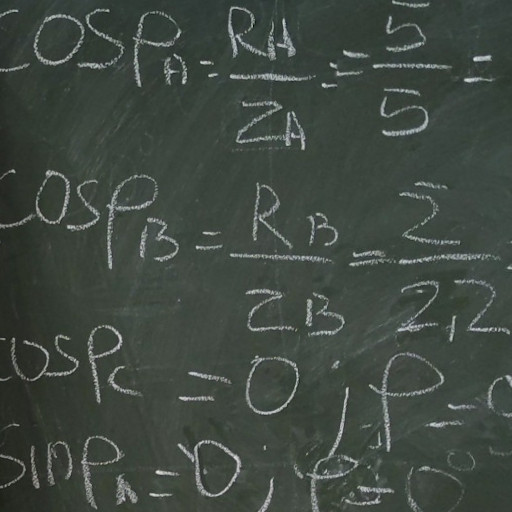 cosρA = RA/ZA = 5/5 =
cosρB = RB/ZB = 2/2,2
cosρC = 0; ρ =
sinρA = 0; ρ = 0°